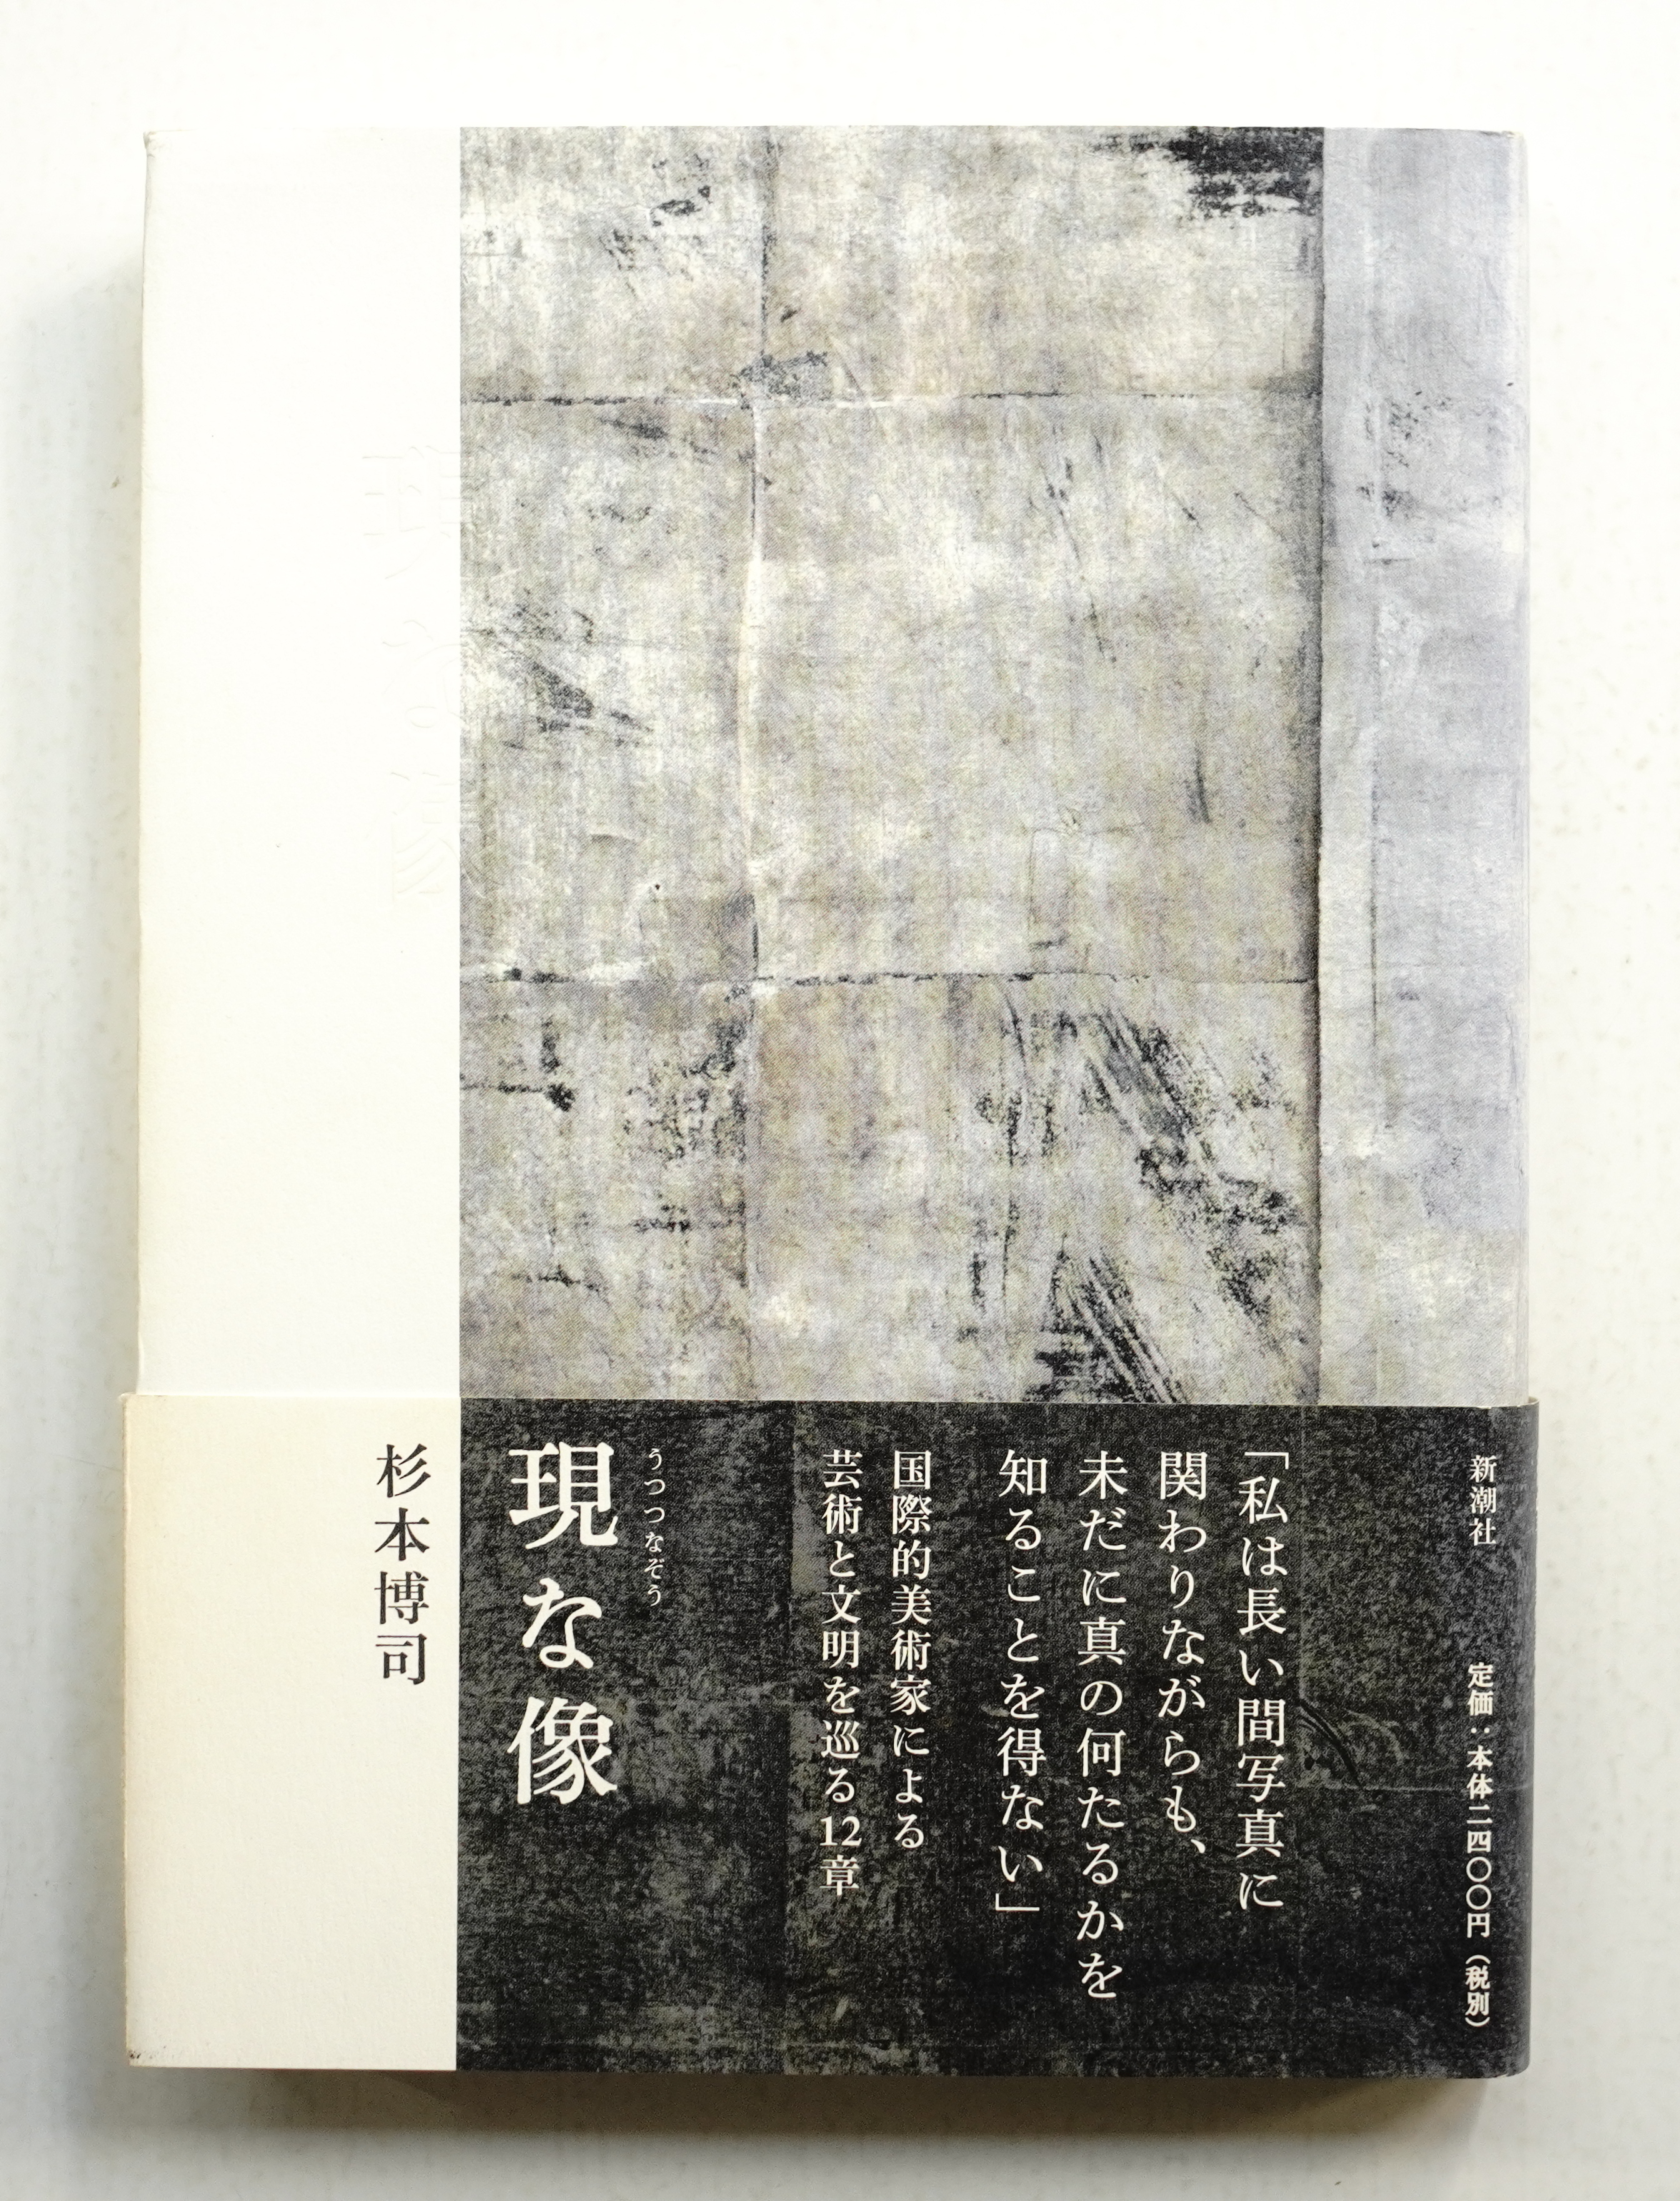 新潮社
定価：本体二四〇〇円（税別）
「私は長い間写真に
関わりながらも、
未だに真の何たるかを
知ることを得ない」
国際的美術家による
芸術と文明を巡る12章
うつつなぞう
現な像
杉本博司
現な像